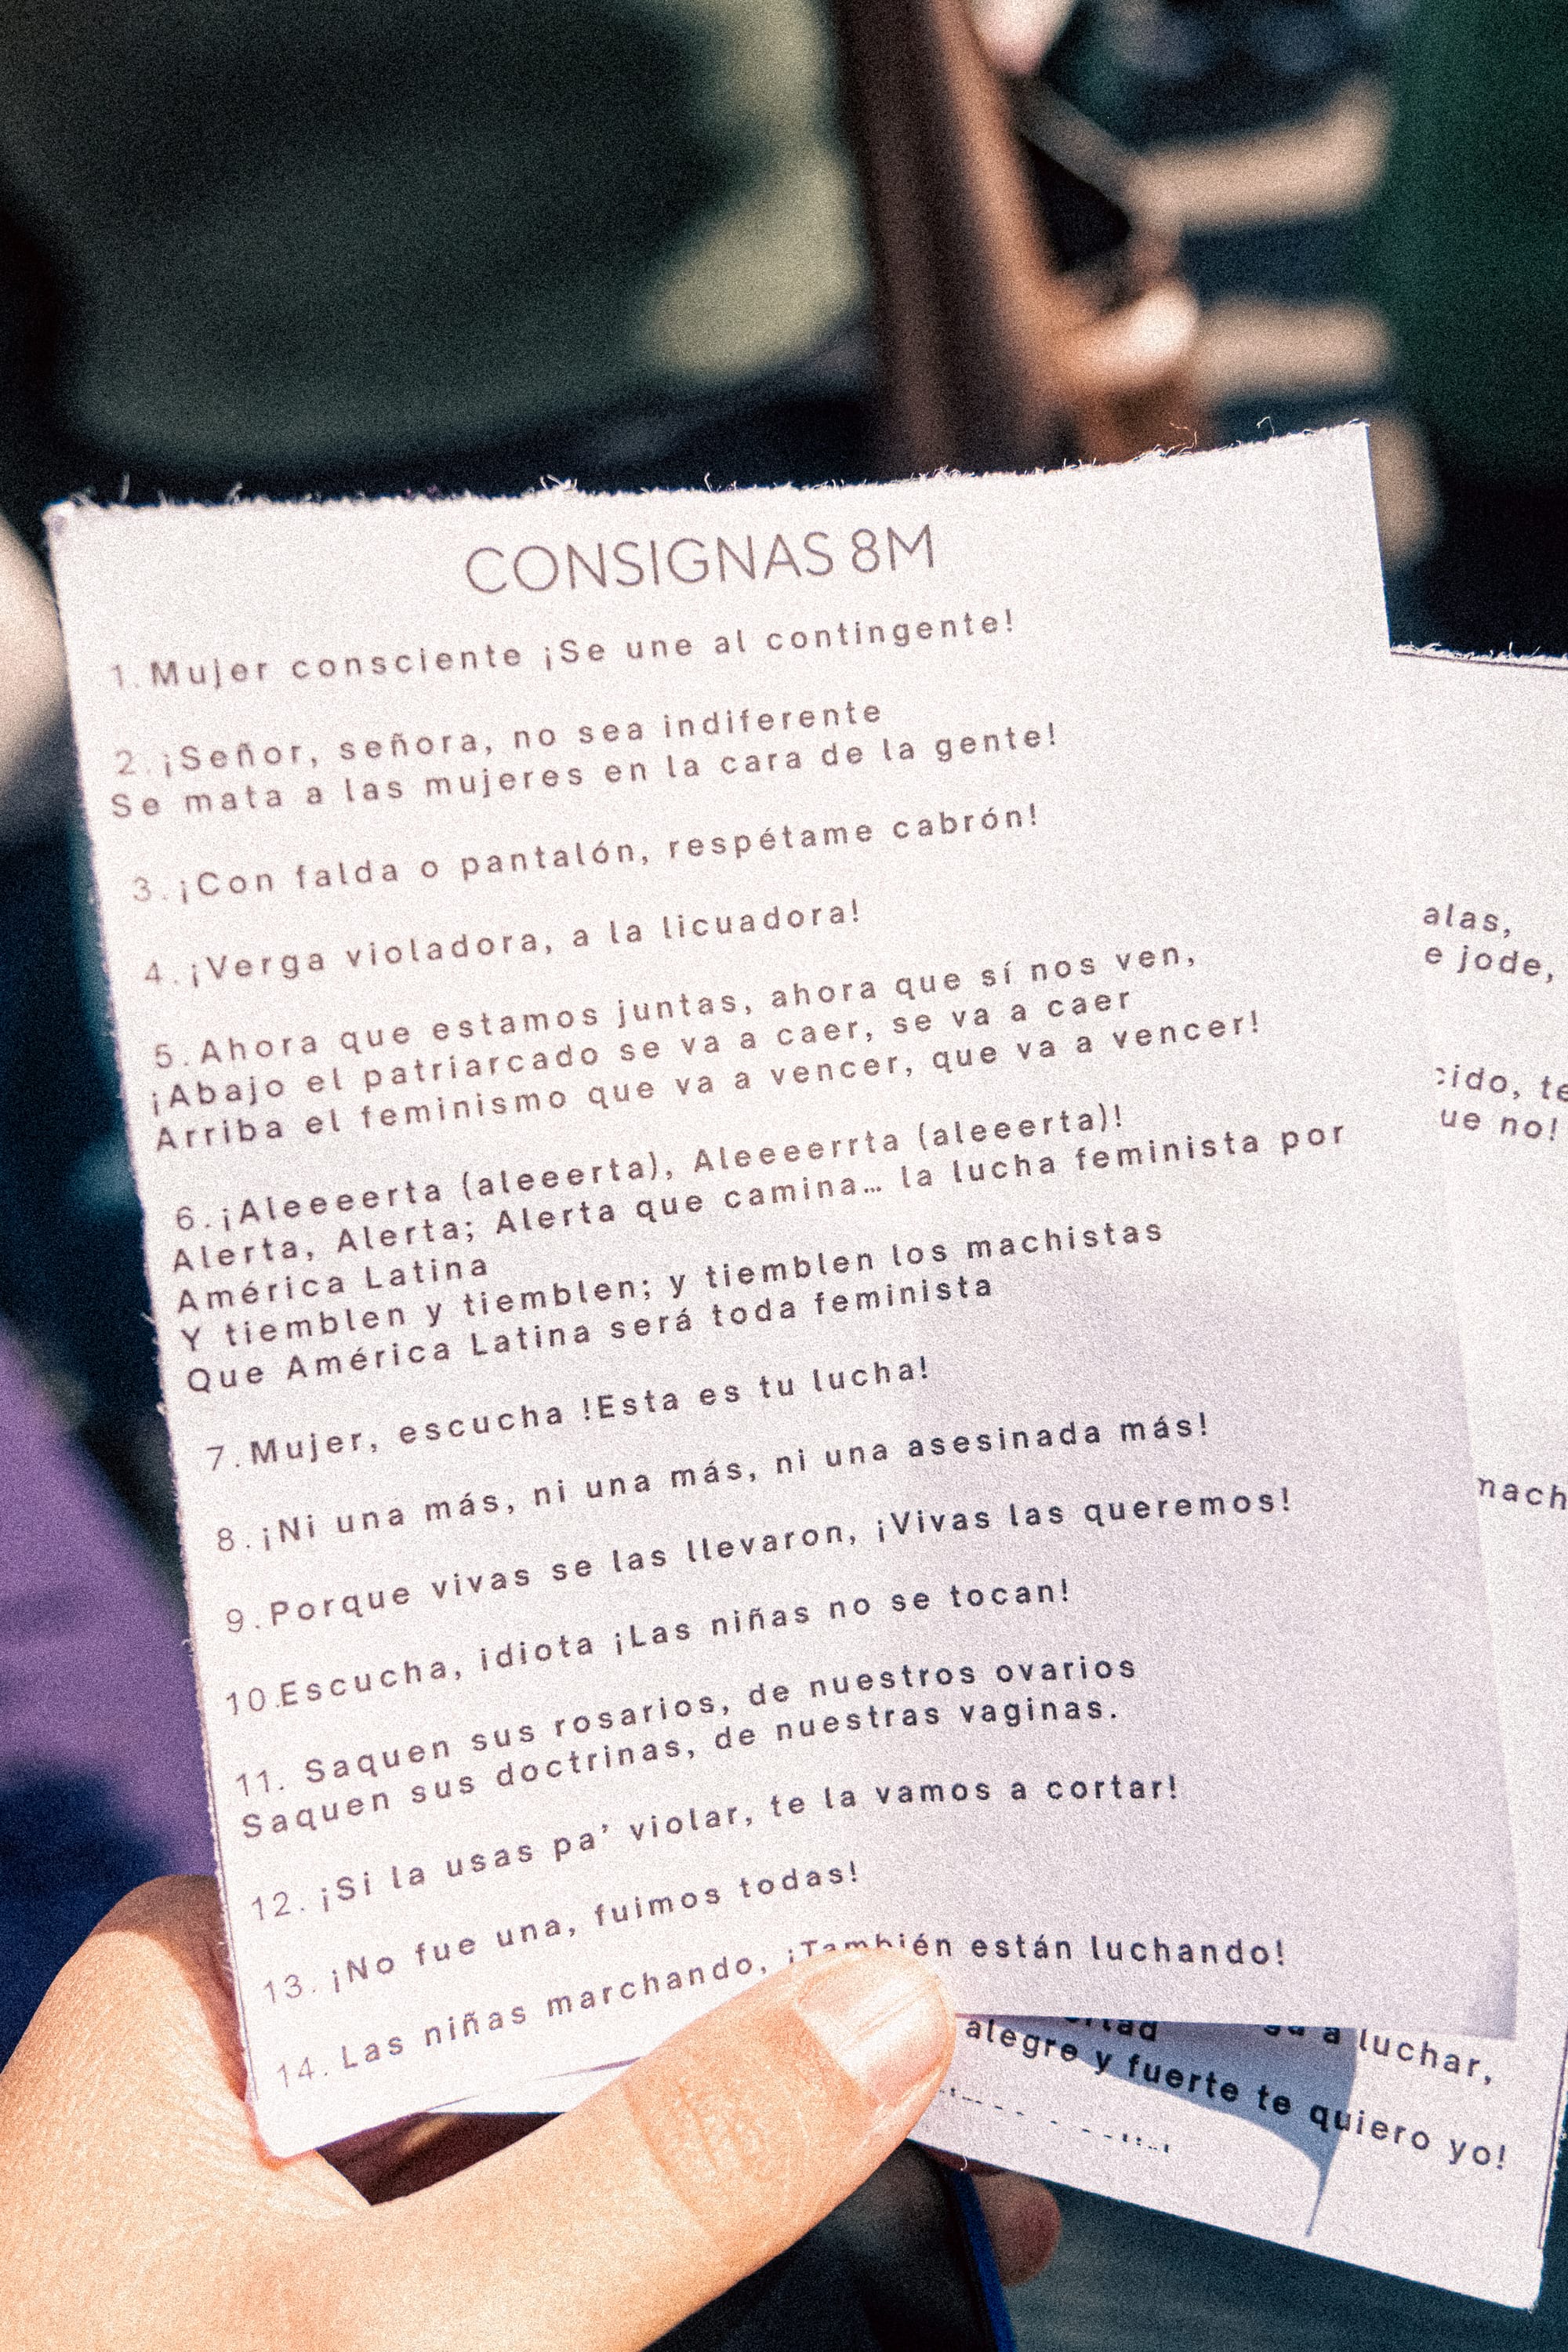 CONSIGNAS 8M
1. Mujer consciente ¡Se une al contingente!
2. ¡Señor, señora, no sea indiferente
Se mata a las mujeres en la cara de la gente!
3. ¡Con falda o pantalón, respétame cabrón!
4. ¡Verga violadora, a la licuadora!
5. Ahora que estamos juntas, ahora que sí nos ven,
¡Abajo el patriarcado se va a caer, se va a caer
Arriba el feminismo que va a vencer, que va a vencer!
6. ¡Aleeeerta (aleeerta), Aleeeerrta (aleeerta)!
Alerta, Alerta; Alerta que camina... la lucha feminista por
América Latina
Y tiemblen y tiemblen; y tiemblen los machistas
Que América Latina será toda feminista
7. Mujer, escucha !Esta es tu lucha!
8. ¡Ni una más, ni una más, ni una asesinada más!
9. Porque vivas se las llevaron, ¡Vivas las queremos!
10. Escucha, idiota ¡Las niñas no se tocan!
11. Saquen sus rosarios, de nuestros ovarios
Saquen sus doctrinas, de nuestras vaginas.
12. ¡Si la usas pa’ violar, te la vamos a cortar!
13. ¡No fue una, fuimos todas!
14. Las niñas marchando, ¡También están luchando!
alas,
e jode,
ue no!
a luchar,
alegre y fuerte te quiero yo!